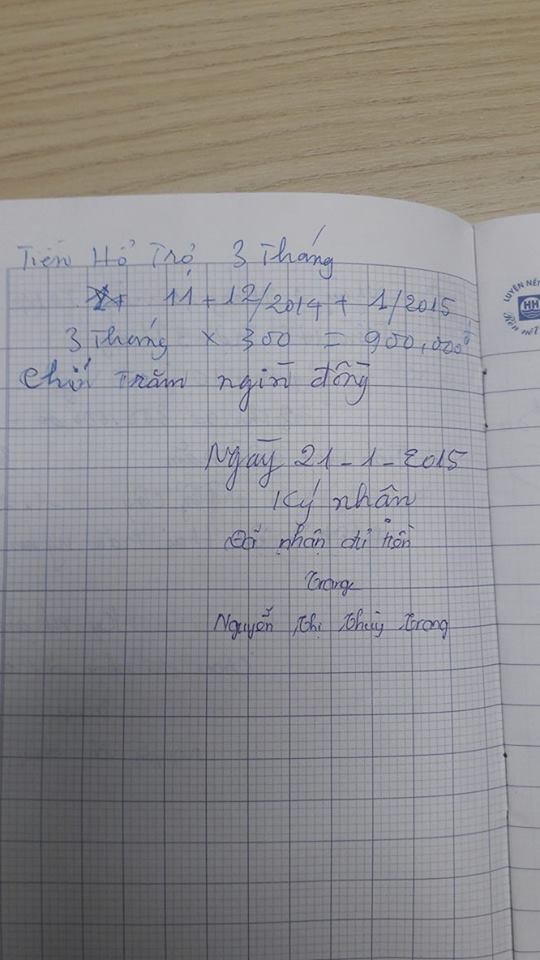 Tiền Hổ Trợ 3 Tháng
11 + 12/2014 + 1/2015
3 Tháng x 300 = 900,000đ
Chín Trăm ngìn đồng
Ngày 21-1-2015
Ký nhân
Đã nhận đủ tiền
Trang
Nguyễn Thị Thuỳ Trang
LUYỆN NÉT
HH
Rèn nết